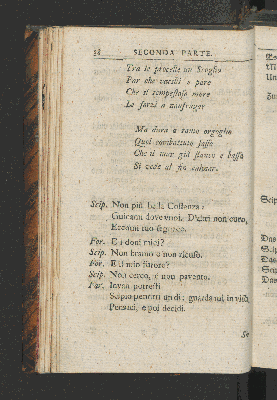 38 SECONDA PARTE.
Tra le procelle un Scoglio
Par che vacilli e pare
Che il tempestoso mare
Lo forzi a naufragar.
Ma dura a tanto orgoglio
Quel combattuto sasso
Che il mar già stanco e basso
Si vede al fin calmar.
Scip. Non più bella Costanza:
Guidami dove vuoi. D'altri non curo,
Eccomi tuo seguace.
For. E i doni miei?
Scip. Non bramo e non ricuso.
For. E il mio furore?
Scip. Non cerco, e non pavento.
For. Invan potresti
Scipio pentirti un dì: guardami in viso,
Pensaci, e poi decidi.
Sc
Scip
Das
Scip
Das
Scip
Das